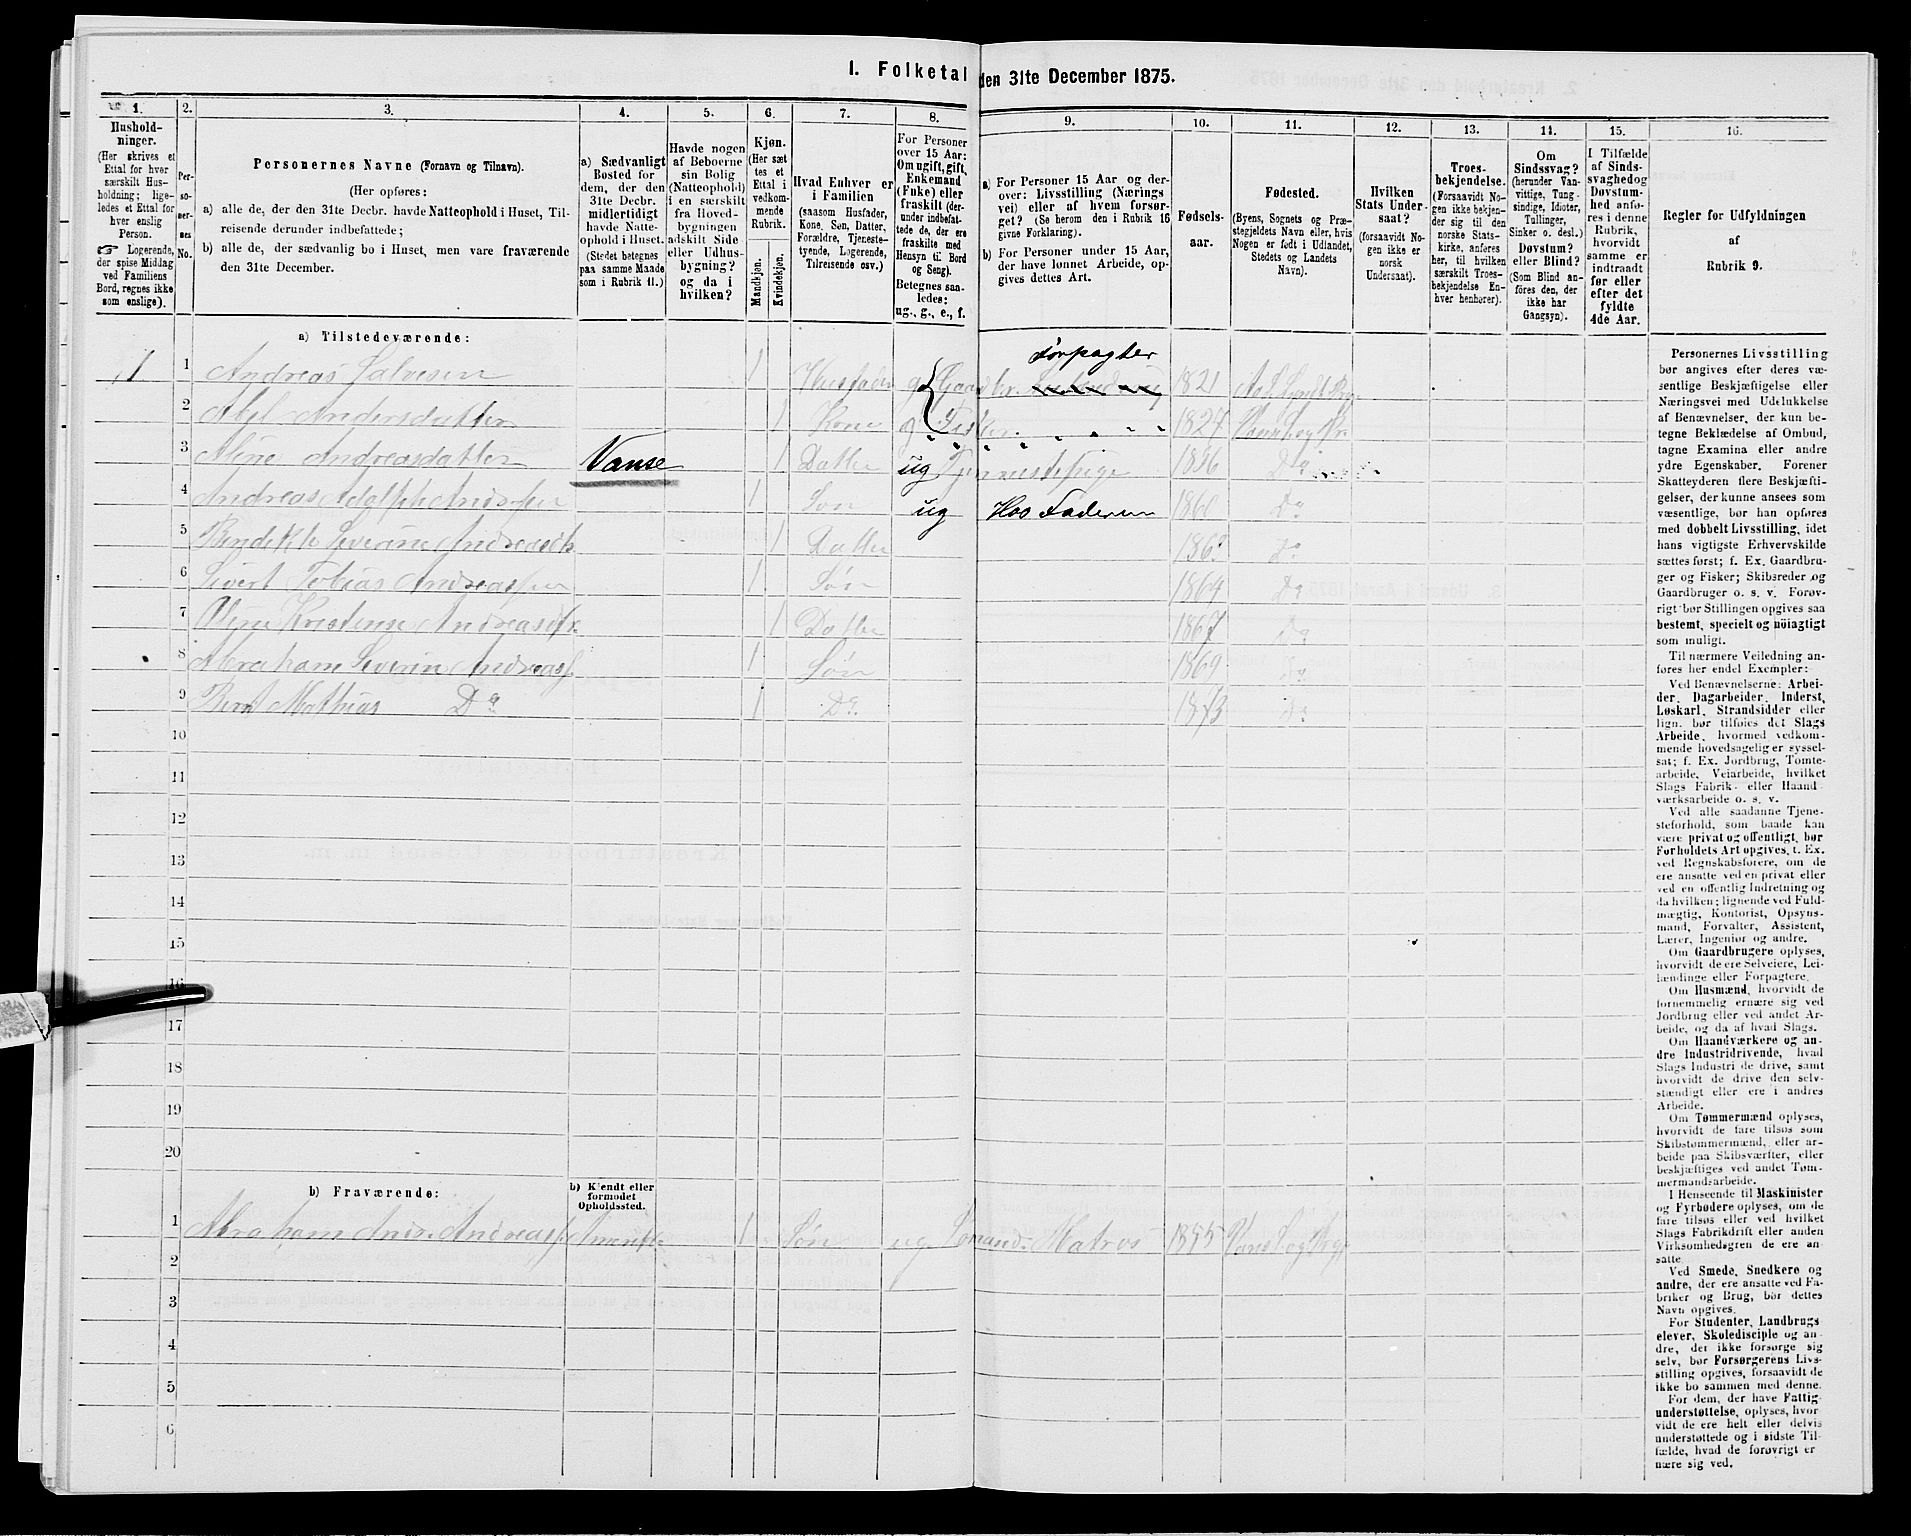 I. Folketal den 31te December 1875.
1. 2. 3. 4. 5. 6. 7. 8. 9. 10. 11. 12. 13. 14. 15. 16.
Hushold-
ninger.
(Her skrives et
Ettal for hver
særskilt Hus-
holdning; lige-
ledes et Ettal for
hver enslig
Person.
☞ Logerende,
der spise Middag
ved Familiens
Bord, regnes ikke
som enslige).
Per-
so-
ner-
nes
No.
Personernes Navne (Fornavn og Tilnavn).
(Her opføres:
a) alle de, der den 31te Decbr. havde Natteophold i Huset, Til-
reisende derunder indbefattede;
b) alle de, der sædvanlig bo i Huset, men vare fraværende
den 31te December.
a) Sædvanligt
Bosted for
dem, der den
31te Decbr.
midlertidigt
havde Natte-
ophold i Huset.
(Stedet betegnes
paa samme Maade
som i Rubrik 11.)
Havde nogen
af Beboerne
sin Bolig
(Natteophold)
i en særskilt
fra Hoved-
bygningen
adskilt Side
eller Udhus-
bygning?
og da i
hvilken?
Kjøn.
(Her sæt
tes et
Ettal i
vedkom-
mende
Rubrik.
Mandkjøn.
Kvindekjøn.
Hvad Enhver er
i Familien
(saasom Husfader,
Kone, Søn, Datter,
Forældre, Tjeneste-
tyende, Logerende,
Tilreisende osv.)
For Personer
over 15 Aar:
Om ugift, gift,
Enkemand
(Enke) eller
fraskilt (der-
under indbefat-
tede de, der ere
fraskilte med
Hensyn til Bord
og Seng).
Betegnes saa-
ledes:
ug., g., e., f.
a) For Personer 15 Aar og der-
over: Livsstilling (Nærings
vei) eller af hvem forsør-
get? (Se herom den i Rubrik 16
givne Forklaring).
b) For Personer under 15 Aar,
der have lønnet Arbeide, op-
gives dettes Art.
Fødsels-
aar.
Fødested.
(Byens, Sognets og Præ-
stegjeldets Navn eller, hvis
Nogen er født i Udlandet,
Stedets og Landets
Navn).
Hvilken
Stats Under-
saat?
(forsaavidt No-
gen ikke er
norsk
Undersaat).
Troes-
bekjendelse.
(Forsaavidt No-
gen ikke bekjen-
der sig til den
norske Stats-
kirke, anføres
her, til hvilken
særskilt Troes-
bekjendelse En-
hver henhører).
Om
Sindssvag?
(herunder Van-
vittige, Tung-
sindige, Idioter,
Tullinger,
Sinker o. desl.)
Døvstum?
eller Blind?
(Som Blind an-
føres den, der
ikke har
Gangsyn).
I Tilfælde
af Sinds-
svaghed og
Døvstum-
hed anfø-
res i denne
Rubrik,
hvorvidt
samme er
indtraadt
før eller
efter det
fyldte
4de Aar.
Regler for Udfyldningen
af
Rubrik 9.
a) Tilstedeværende:
Forpagter
1 1 Andreas Salvesen 1 Husfader g Gaardbr. 1821
2 Andersdatter 1 Kone g Fisker 1824
3 Aline Andreasdatter Vanse 1 Datter ug Tjenestepige 1856 Do
4 Andreas Adolph Andreassen 1 Søn ug Hos Faderen 1860 Do
5 Severine Andreasdtr 1 Datter Do
6 Sivert Tobias Andreassen 1 Søn 1864 Do
7 Andreasdtr. 1 Datter 1867 Do
8 Abraham Severin Andreass. 1 Søn 1869 Do
9 Bernt Mathias Do 1 Do. 1873 Do
10
11
12
13
14
15
16
17
18
19
20
b) Fraværende:
b) Kjendt eller
formodet
Opholdssted.
1 Abraham Andreass. Amerika 1 Søn ug Sømand. Matros 1855
2
3
4
5
6
Personernes Livsstilling
bør angives efter deres væ-
sentlige Beskjæftigelse eller
Næringsvei med Udelukkelse
af Benævnelser, der kun be-
tegne Beklædelse af Ombud,
tagne Examina eller andre
ydre Egenskaber. Forener
Skatteyderen flere Beskjæfti-
gelser, der kunne ansees som
væsentlige, bør han opføres
med dobbelt Livsstilling, idet
hans vigtigste Erhvervskilde
sættes først; f. Ex. Gaardbru-
ger og Fisker; Skibsreder og
Gaardbruger o. s. v. Forøv-
rigt bør Stillingen opgives saa
bestemt, specielt og nöiagtigt
som muligt.
Til nærmere Veiledning an-
føres her endel Exempler:
Ved Benævnelserne: Arbei-
der, Dagarbeider, Inderst,
Løskarl, Strandsidder eller
lign. bør tilføies det Slags
Arbeide, hvormed vedkom-
mende hovedsagelig er syssel-
sat; f. Ex. Jordbrug, Tomte-
arbeide, Veiarbeide, hvilket
Slags Fabrik- eller Haand
værksarbeide o. s. v.
Ved alle saadanne Tjene-
steforhold, som baade kan
være privat og offentligt, bør
Forholdets Art opgives, t. Ex.
ved Regnskabsførere, om de
ere ansatte ved en privat eller
ved en offentlig Indretning og
da hvilken; lignende ved Fuld-
mægtig, Kontorist, Opsyns-
mand, Forvalter, Assistent,
Lærer, Ingeniør og andre.
Om Gaardbrugere oplyses,
hvorvidt de ere Selveiere, Lei-
lændinge eller Forpagtere.
Om Husmænd, hvorvidt de
fornemmelig ernære sig ved
Jordbrug eller ved andet Ar-
beide, og da af hvad Slags.
Om Haandværkere og an-
dre Industridrivende, hvad
Slags Industri de drive, samt
hvorvidt de drive den selv-
stændigt eller ere i andres
Arbeide.
Om Tømmermænd oplyses,
hvorvidt de fare tilsøs som
Skibstømmermænd, eller ar-
beide paa Skibsværfter, eller
beskjæftiges ved andet Tøm-
mermandsarbeide.
I Henseende til Maskinister
og Fyrbødere oplyses, om de
fare tilsøs eller ved hvilket
Slags Fabrikdrift eller anden
Virksomhedsgren de ere an-
satte.
Ved Smede, Snedkere og
andre, der ere ansatte ved Fa-
briker og Brug, bør dettes
Navn opgives.
For Studenter, Landbrugs
elever, Skoledisciple og an-
dre, det ikke forsørge sig
selv, bør Forsørgerens Livs-
stilling opgives, forsaavidt de
ikke bo sammen med denne.
For dem, der have Fattig-
understøttelse, oplyses, hvor-
vidt de ere helt eller delvis
understøttede og i sidste Til-
fælde, hvad de forøvrigt er
nære sig ved.